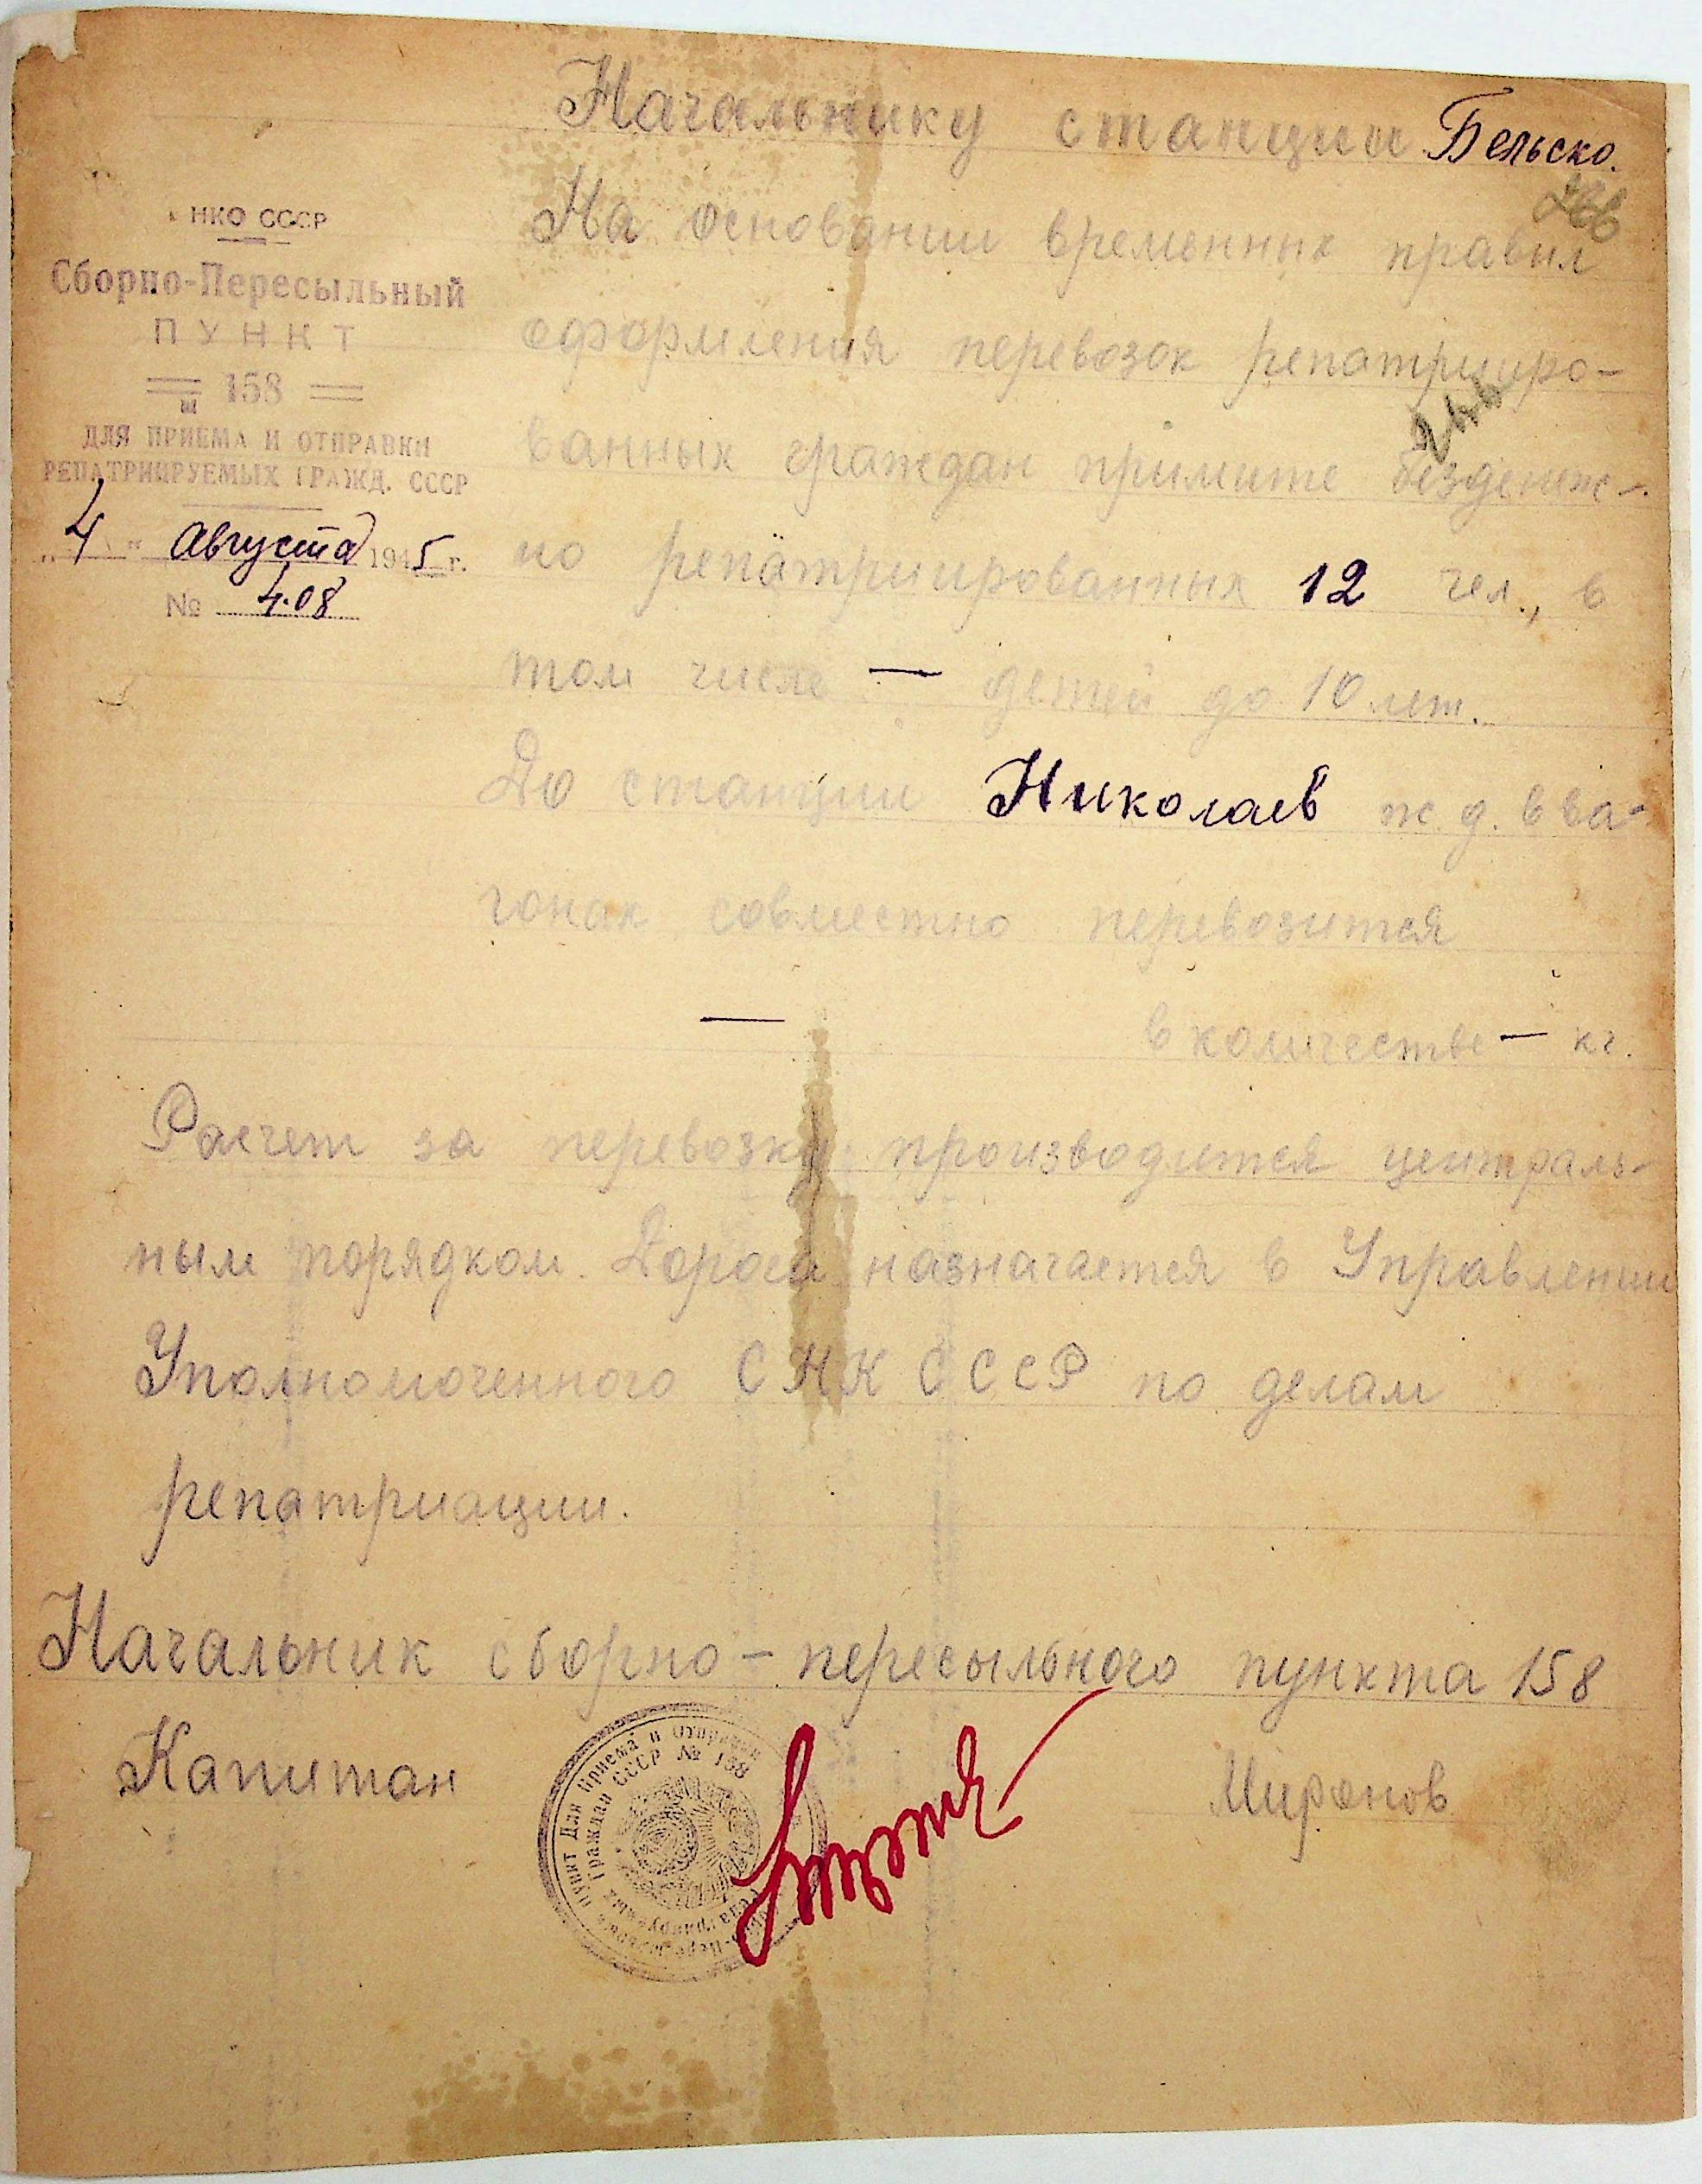 Начальнику станции Бельско.
НКО СССР
Сборно-Пересыльный
ПУНКТ
158
ДЛЯ ПРИЕМА И ОТПРАВКИ
РЕПАТРИИРУЕМЫХ ГРАЖД. СССР
"4" Августа 1945 г.
№ 408
На основании временных правил
оформления перевозок репатрииро-
ванных граждан примите безденеж-
но репатриированных 12 чел., в
том числе — детей до 10 лет.
До станции Николаев ж.д. в ва-
гонах совместно перевозится
— в количестве — кг.
Расчет за перевозку производится централь-
ным порядком. Дорога назначается в Управлении
Уполномоченного СНК СССР по делам
репатриации.
Начальник сборно-пересыльного пункта 158
Капитан Миронов
Пункт Для Приема и Отправки
Репатриируемых Граждан СССР № 158